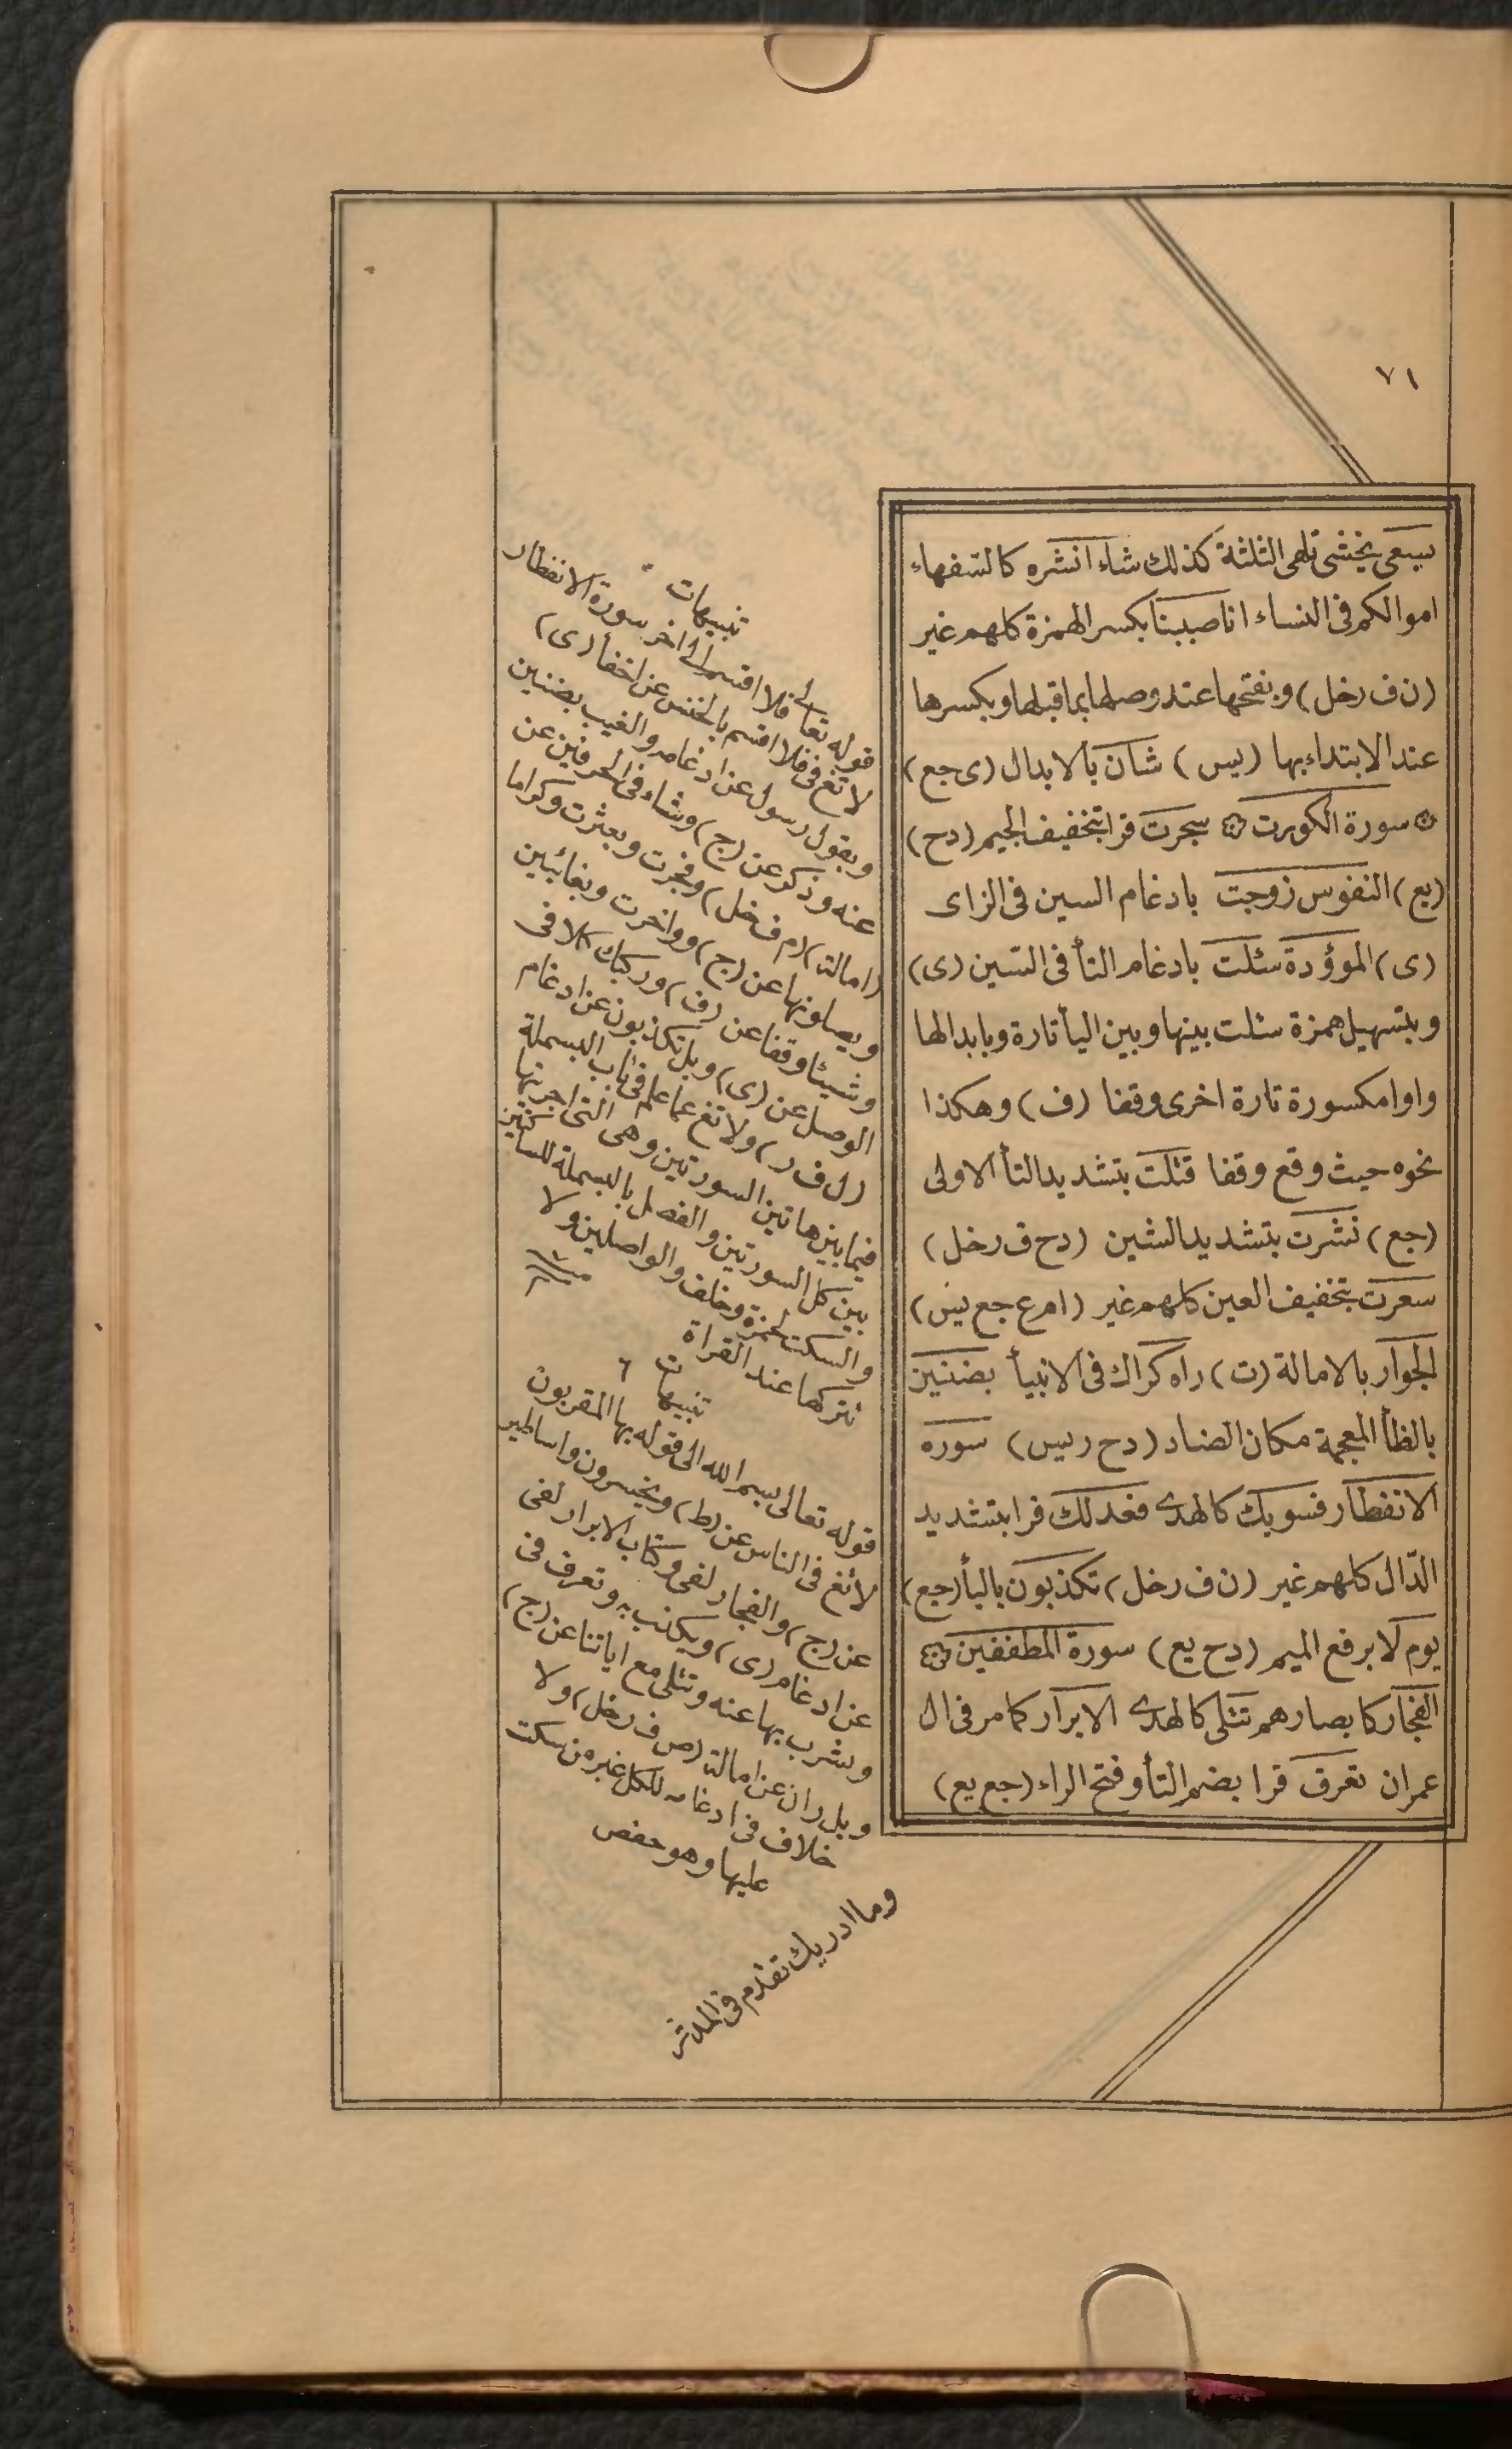 ٧١
يسعى يخشى تلهى الثلثة كذلك شاء انشره كالسفهاء
اموالكم فى النساء انا صببنا بكسر الهمزة كلهم غير
(ن ف رخل) وبفتحها عند وصلها بما قبلها وبكسرها
عند الابتداء بها (يس) شان بالابدال (ى جع)
۞ سورة الكورت ۞ سجرت قرا بتخفيف الجيم (دح)
(يع) النفوس زوجت بادغام السين فى الزاى
(ى) الموؤدة سئلت بادغام التأ فى السين (ى)
وبتسهيل همزة سئلت بينها وبين اليأ تارة وبابدالها
واوا مكسورة تارة اخرى وقفا (ف) وهكذا
نحوه حيث وقع وقفا قتلت بتشديد التأ الاولى
(جع) نشرت بتشديد الشين (دح ف رخل)
سعرت بتخفيف العين كلهم غير (ام ع جع يس)
الجوار بالامالة (ت) راه كراك فى الانبيأ بضنين
بالظأ المعجمة مكان الضاد (دح ريس) سوره
الانفطار فسويك كالهدى فعدلك قرا بتشديد
الدّال كلهم غير (ن ف رخل) تكذبون باليأ (جع)
يوم لا برفع الميم (دح يع) سورة المطففين ۞
الفجار كابصارهم تتلى كالهدى الابرار كما مر فى ال
عمران تعرف قرا بضم التأ وفتح الراء (جع يع)
تنبيهات
قوله تعالى فلا اقسم الى اخر سورة الانفطار
لا تغ فى فلا اقسم بالخنس عن اخفأ (ى)
وبقول رسول عن ادغامه والغيب بضنين
عنه وذكر عن (ج) وشاء فى الحرفين عن
امالة (م ف خل) وفجرت وبعثرت وكراما
ويصلونها عن (ج) وواخرت وبغائبين
وشيئا وقفا عن (ف) وركبك كلا فى
الوصل عن (ى) وبل تكذبون عن ادغام
(ل ف ر) ولا تغ عما علم فى باب البسملة
فيما بين هاتين السورتين وهى التى اجريتها
بين كل السورتين والفصل بالبسملة للساكتين
والسكت لحمزة وخلف والواصلين ولا
تتركها عند القراة
تنبيهات
قوله تعالى بسم الله الى قوله بها المقربون
لا تغ فى الناس عن (ط) ويخسرون واساطير
عن (ج) والفجار لفى وكتاب الابرار لفى
عن ادغام (ى) ويكذب به وتعرف فى
ويشرب بها عنه وتتلى مع اياتنا عن (ج)
وبل ران عن امالة (ص ف رخل) ولا
خلاف فى ادغامه للكل غير من سكت
عليها وهو حفص
وما ادريك تقدم فى المدثر